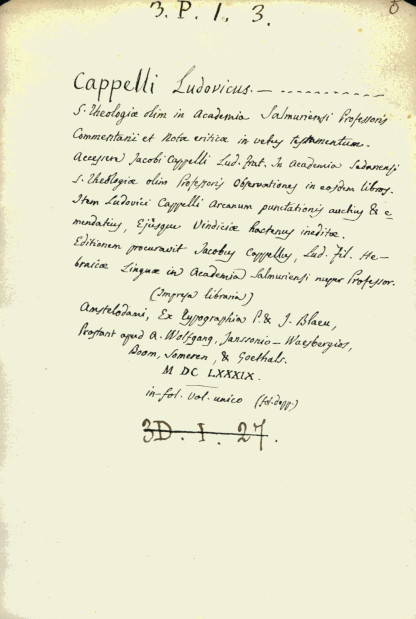 3. P. I., 3.
Cappelli Ludovicus. — - - - - - - - - - -
S. Theologiæ olim in Academia Salmuriensi Professoris
Commentarii et Notæ criticæ in vetus testamentum.
Accessere Jacobi Cappelli Lud. frat. In Academia Sedanensi
S. Theologiæ olim Professoris Observationes in eosdem libros.
Item Ludovici Cappelli Arcanum punctationis auctius & e-
mendatius, Ejusque Vindiciæ hactenus ineditæ.
Editionem procuravit Jacobus Cappellus, Lud. fil. He-
braicæ Linguæ in Academia Salmuriensi nuper Professor.
(Impresa libraria)
Amstelodami, Ex typographia P. & J. Blaeu,
Prostant apud A. Wolfgang, Janssonio-Waesbergios,
Boom, Someren, & Goethals.
M DC LXXXIX.
in-fol. vol. unico (fol. dopp.)
3D. I. 27.